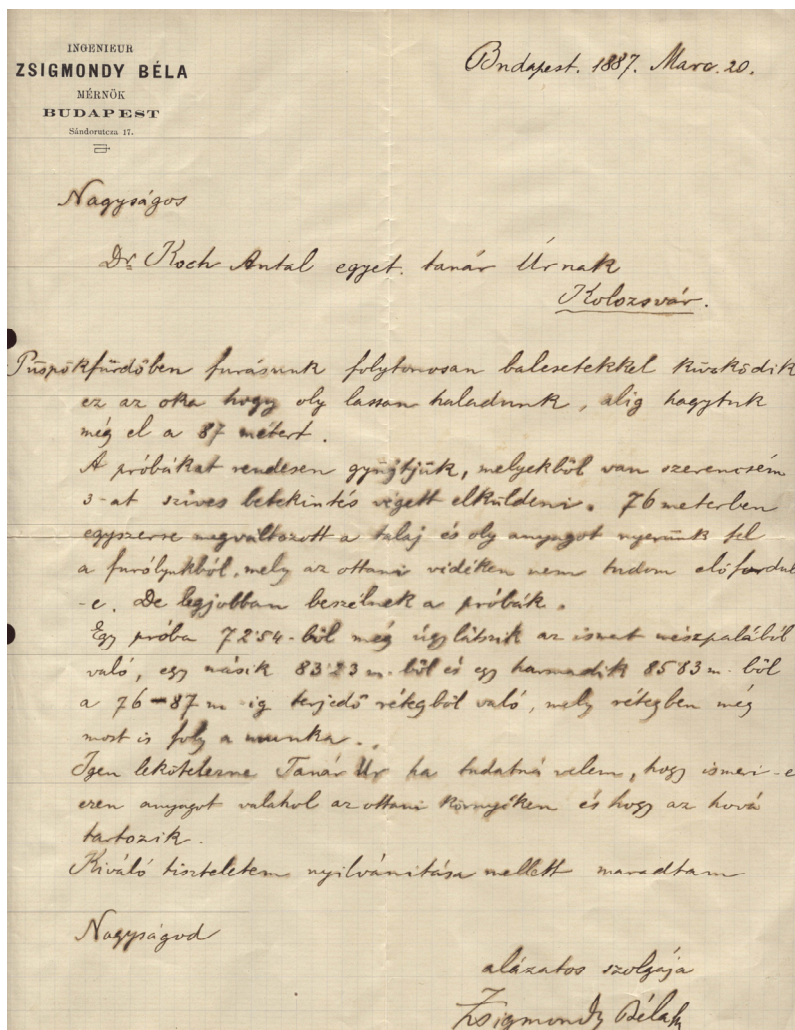 INGENIEUR
ZSIGMONDY BÉLA
MÉRNÖK
BUDAPEST
Sándorutcza 17.
Budapest. 1887. Marc. 20.
Nagyságos
Dr. Koch Antal egyet. tanár Úrnak
Kolozsvár.
Püspökfürdőben furásunk folytonosan balesetekkel küzködik
ez az oka hogy oly lassan haladunk, alig hagytuk
még el a 87 métert.
A próbákat rendesen gyüjtjük, melyekből van szerencsém
3-at szives betekintés végett elküldeni. 76 meterben
egyszerre megváltozott a talaj és oly anyagot nyerünk fel
a furólyukból, mely az ottani vidéken nem tudom előfordul
-e. De legjobban beszélnek a próbák.
Egy próba 72.54-ből még úgylátszik az ismet mészpalából
való, egy másik 83.23 m. ből és egy harmadik 85.83 m. ből
a 76-87 m -ig terjedő rétegből való, mely rétegben még
most is foly a munka.
Igen lekötelezne Tanár Úr ha tudatná velem, hogy ismeri-e
ezen anyagot valahol az ottani környéken és hogy az hová
tartozik.
Kiváló tiszteletem nyilvánitása mellett maradtam
Nagyságod
alázatos szolgája
Zsigmondy Béla